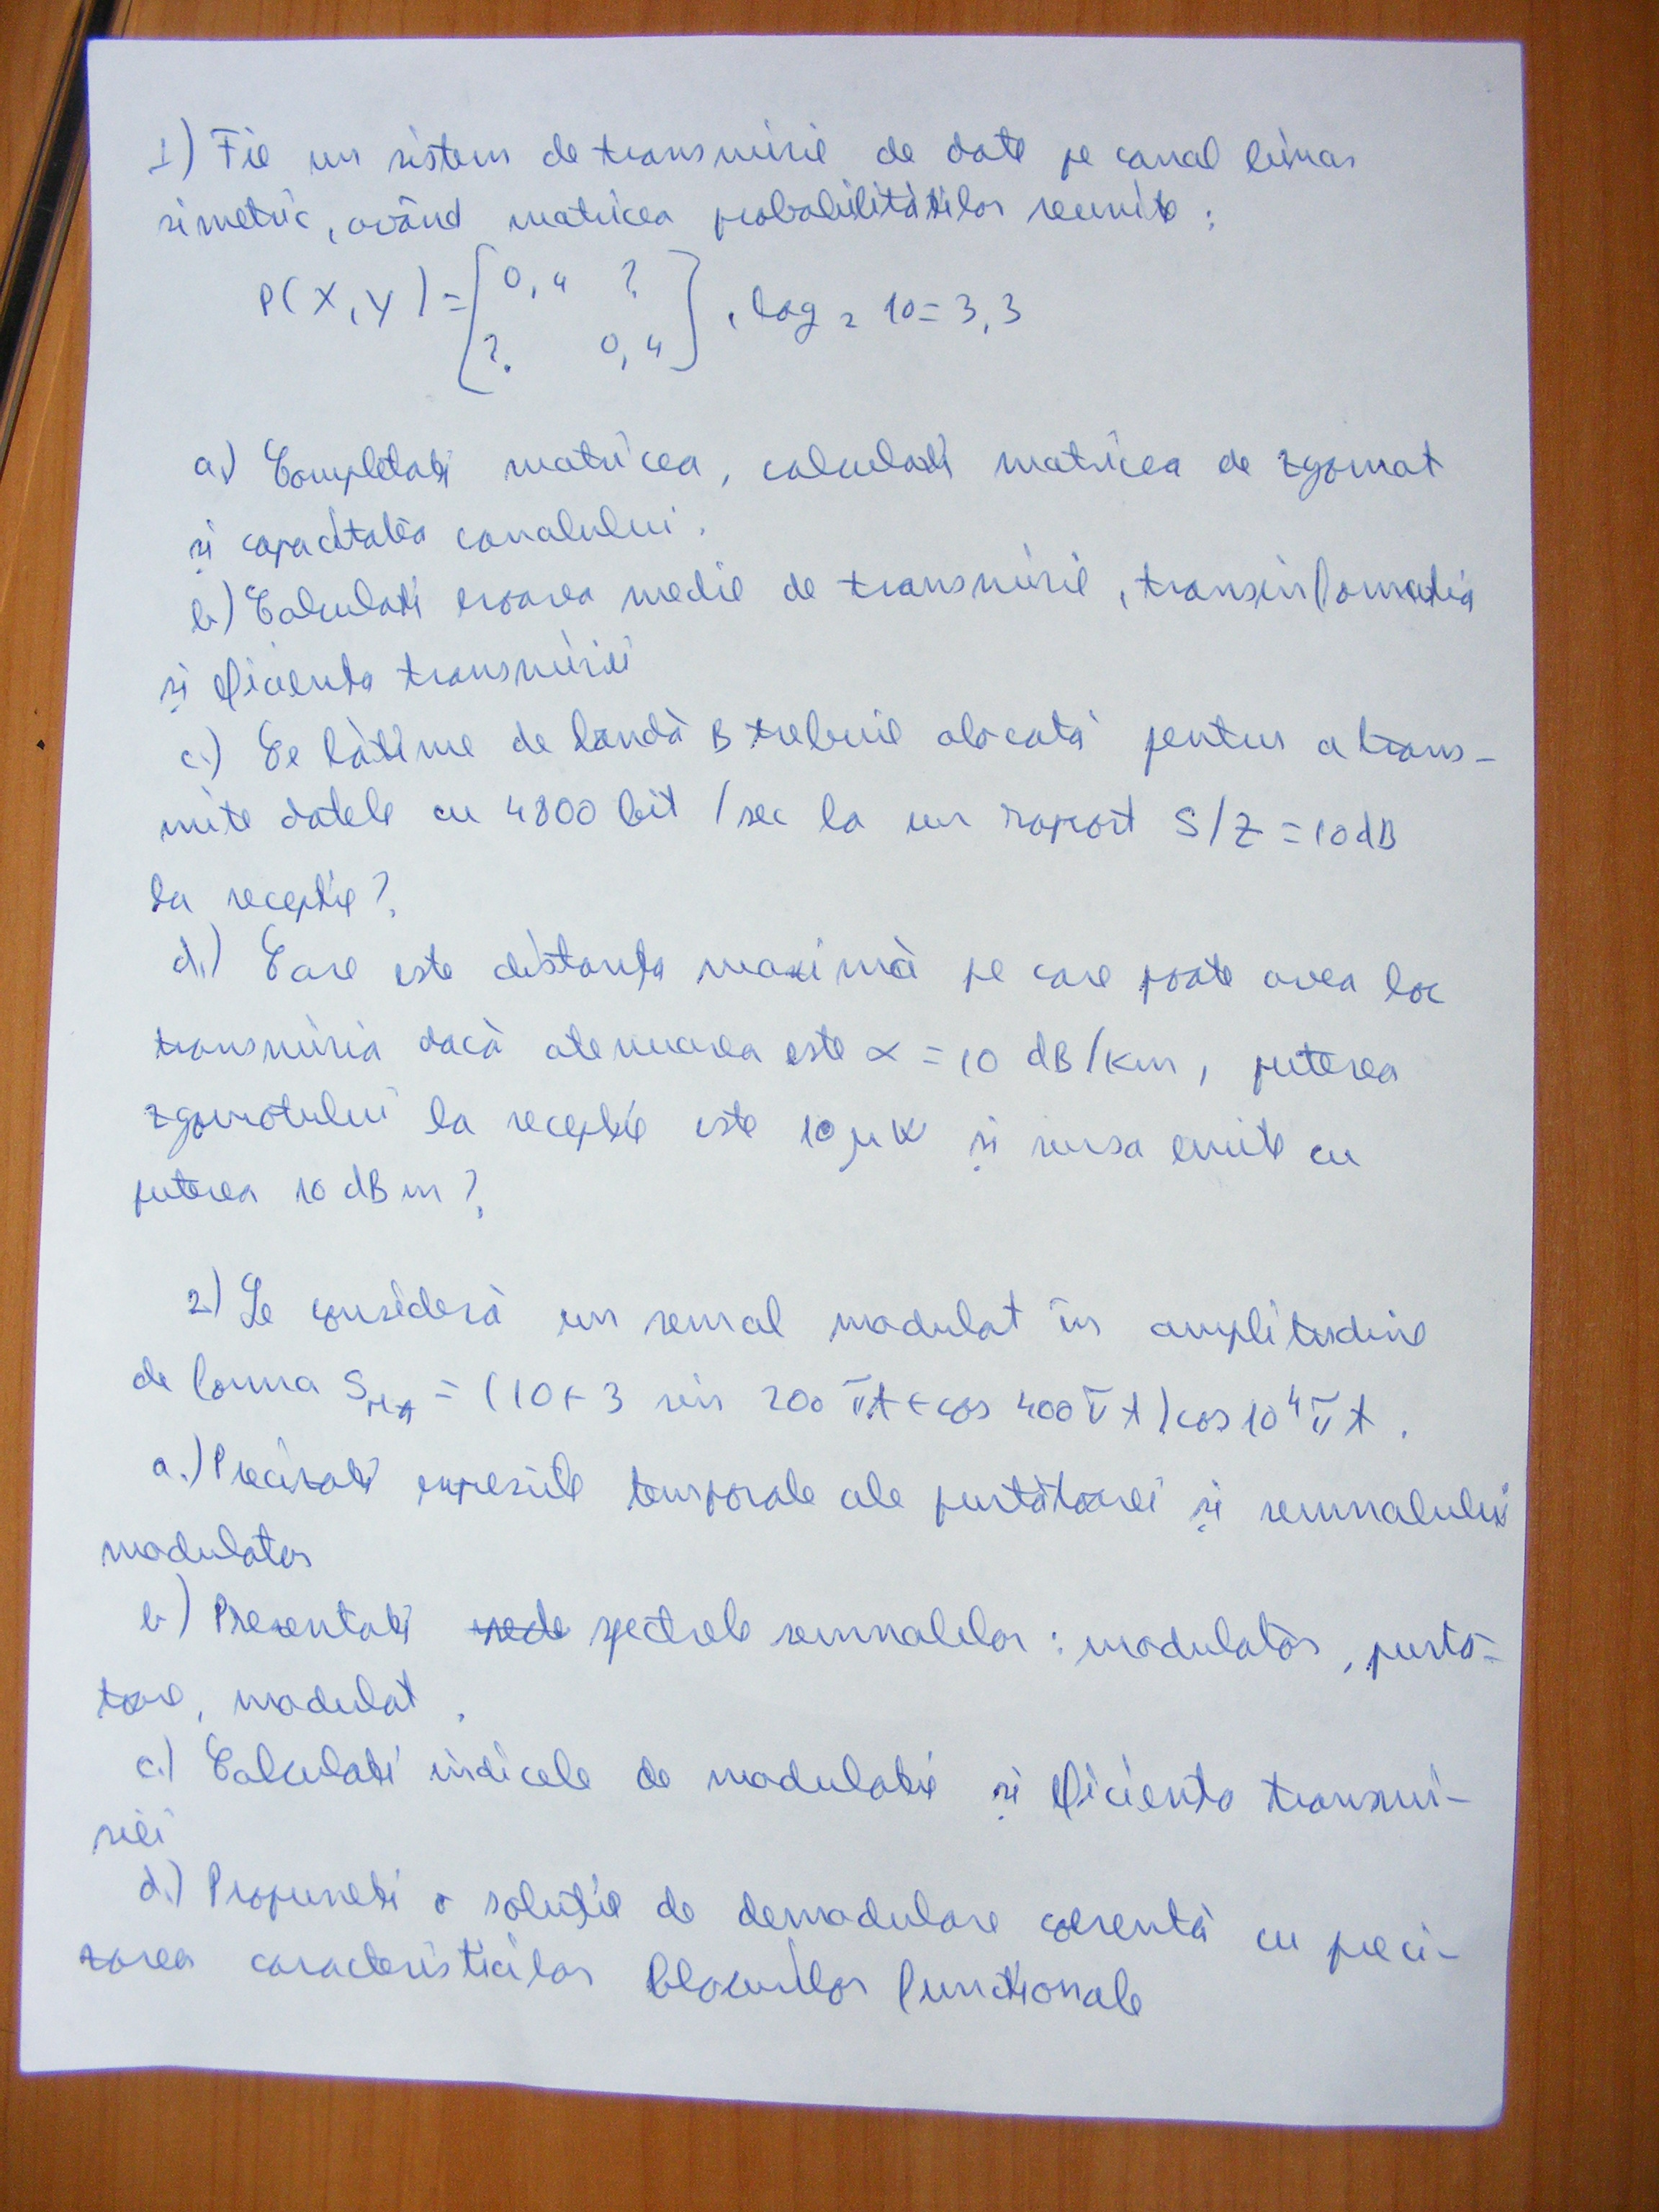 1) Fie un sistem de transmisie de date pe canal binar
simetric, având matricea probabilităților reunite :
P(X,Y) = [0,4 ? ; ? 0,4] , log₂ 10 = 3,3
a.) Completați matricea, calculați matricea de zgomot
și capacitatea canalului.
b.) Calculați eroarea medie de transmisie, transinformația
și eficiența transmisiei
c.) Ce lățime de bandă B trebuie alocată pentru a trans-
mite datele cu 4800 bit/sec la un raport S/Z = 10 dB
la recepție?
d.) Care este distanța maximă pe care poate avea loc
transmisia dacă atenuarea este α = 10 dB/Km, puterea
zgomotului la recepție este 10 μW și sursa emite cu
puterea 10 dBm?
2.) Se consideră un semnal modulat în amplitudine
de forma S_MA = (10 + 3 sin 200 πt + cos 400 πt) cos 10⁴ πt .
a.) Precizați expresiile temporale ale purtătoarei și semnalului
modulator
b) Prezentați spectrele semnalelor : modulator, purtă-
toare, modulat.
c.) Calculați indicele de modulație și eficiența transmi-
siei
d.) Propuneți o soluție de demodulare coerentă cu preci-
zarea caracteristicilor blocurilor funcționale